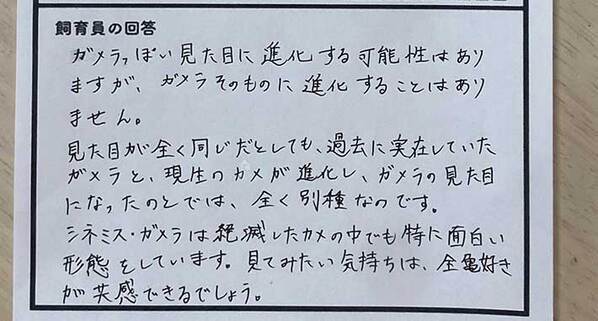 飼育員の回答
ガメラっぽい見た目に進化する可能性はあり
ますが、ガメラそのものに進化することはあり
ません。
見た目が全く同じだとしても、過去に実在していた
ガメラと、現生のカメが進化し、ガメラの見た目
になったのとでは、全く別種なのです。
シネミス・ガメラは絶滅したカメの中でも特に面白い
形態をしています。見てみたい気持ちは、全亀好き
が共感できるでしょう。